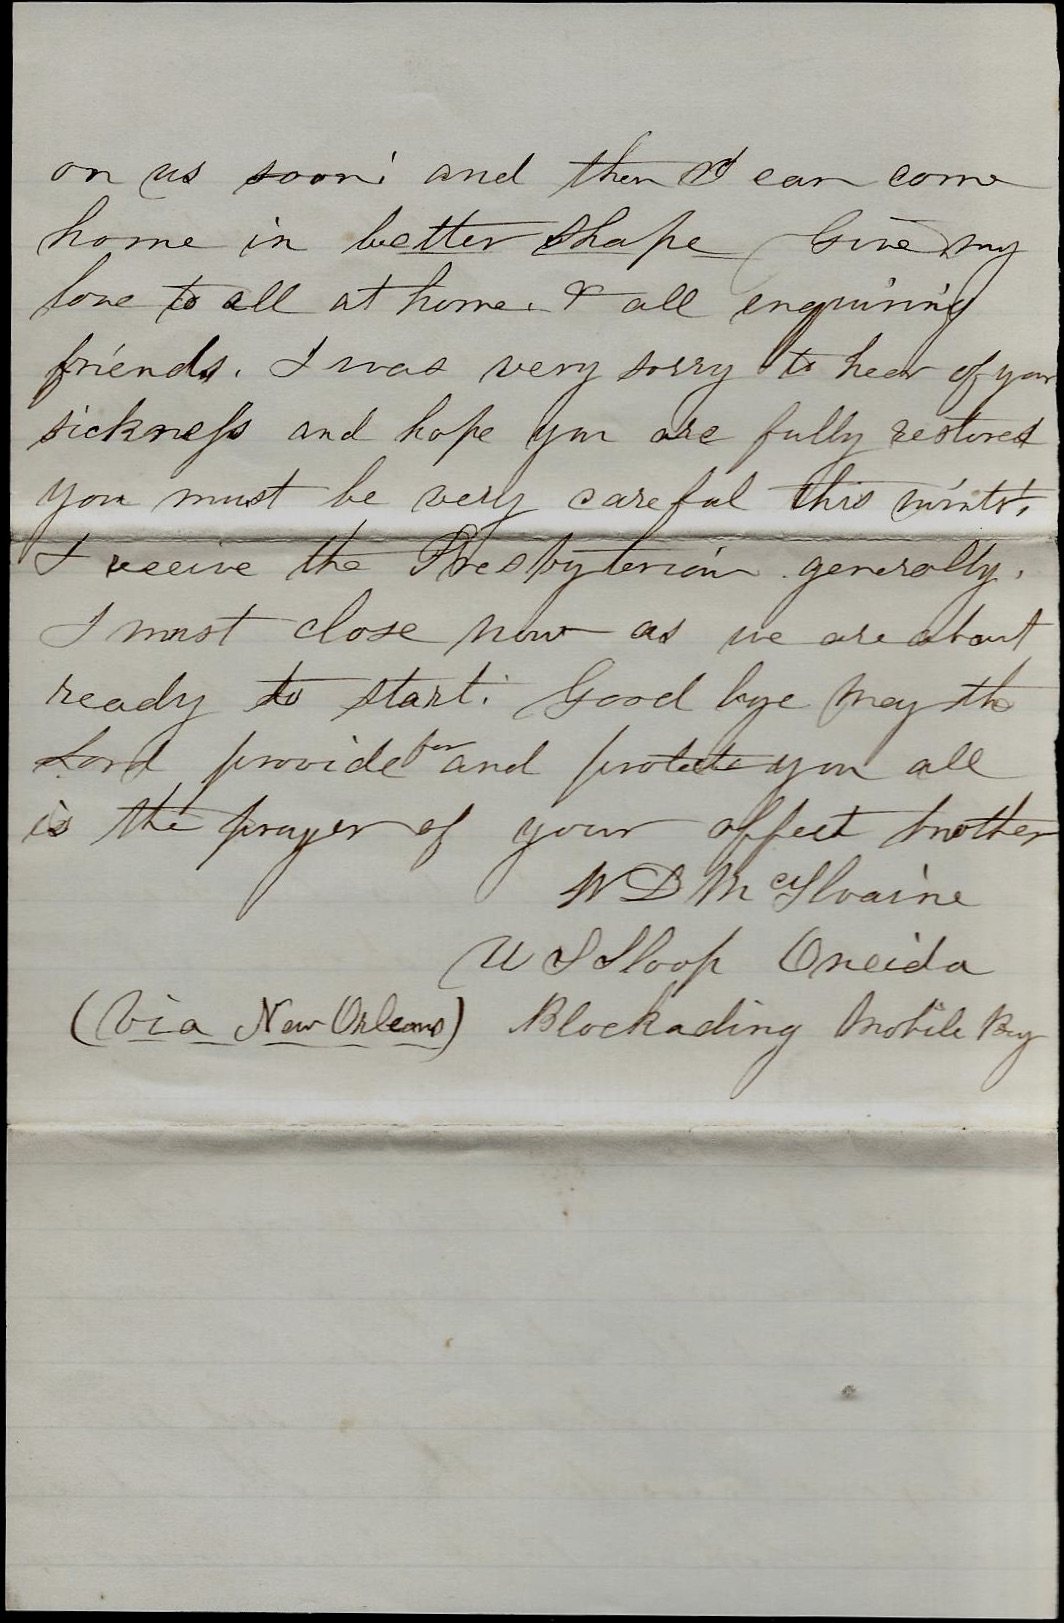 on us soon and then I can come
home in better shape Give my
love to all at home. & all enquiring
friends. I was very sorry to hear of your
sickness and hope you are fully restored
you must be very careful this wint'r.
I receive the Presbyterian generally.
I must close now as we are about
ready to start. Good bye may the
Lord provide for and protect you all
is the prayer of your affect brother
W D McIlvaine
U S Sloop Oneida
(Via New Orleans) Blockading Mobile Bay